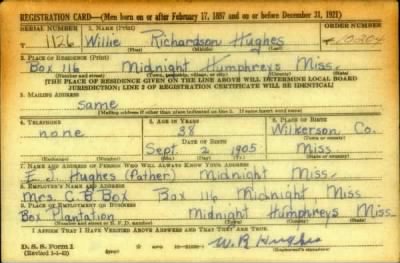 REGISTRATION CARD—(Men born on or after February 17, 1897 and on or before December 31, 1921)
SERIAL NUMBER 1. NAME (Print) ORDER NUMBER
1126 Willie Richardson Hughes 10204
(First) (Middle) (Last)
2. PLACE OF RESIDENCE (Print)
Box 116 Midnight Humphreys Miss.
(Number and street) (Town, township, village, or city) (County) (State)
[THE PLACE OF RESIDENCE GIVEN ON THE LINE ABOVE WILL DETERMINE LOCAL BOARD
JURISDICTION; LINE 2 OF REGISTRATION CERTIFICATE WILL BE IDENTICAL]
3. MAILING ADDRESS
same
[Mailing address if other than place indicated on line 2. If same insert word same]
4. TELEPHONE 5. AGE IN YEARS 6. PLACE OF BIRTH
none 38 Wilkerson Co.
DATE OF BIRTH (Town or county)
Sept. 2 1905 Miss
(Exchange) (Number) (Mo.) (Day) (Yr.) (State or country)
7. NAME AND ADDRESS OF PERSON WHO WILL ALWAYS KNOW YOUR ADDRESS
E. J. Hughes (Father) Midnight Miss.
8. EMPLOYER'S NAME AND ADDRESS
Mrs. C. B. Box Box 116 Midnight Miss
9. PLACE OF EMPLOYMENT OR BUSINESS
Box Plantation Midnight Humphreys Miss.
(Number and street or R. F. D. number) (Town) (County) (State)
I AFFIRM THAT I HAVE VERIFIED ABOVE ANSWERS AND THAT THEY ARE TRUE.
D. S. S. Form 1
(Revised 1-1-42) (over) W. R. Hughes
(Registrant's signature)